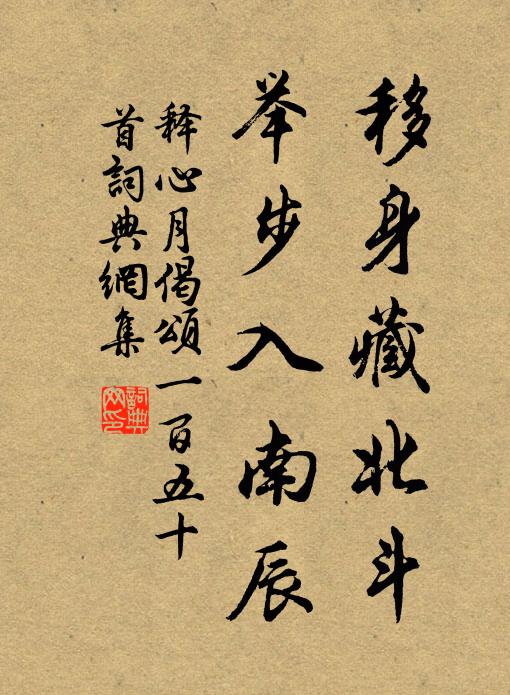 移身藏北斗
举步入南辰
释心月偈頌一百五十
首詞典網集
詞典網印